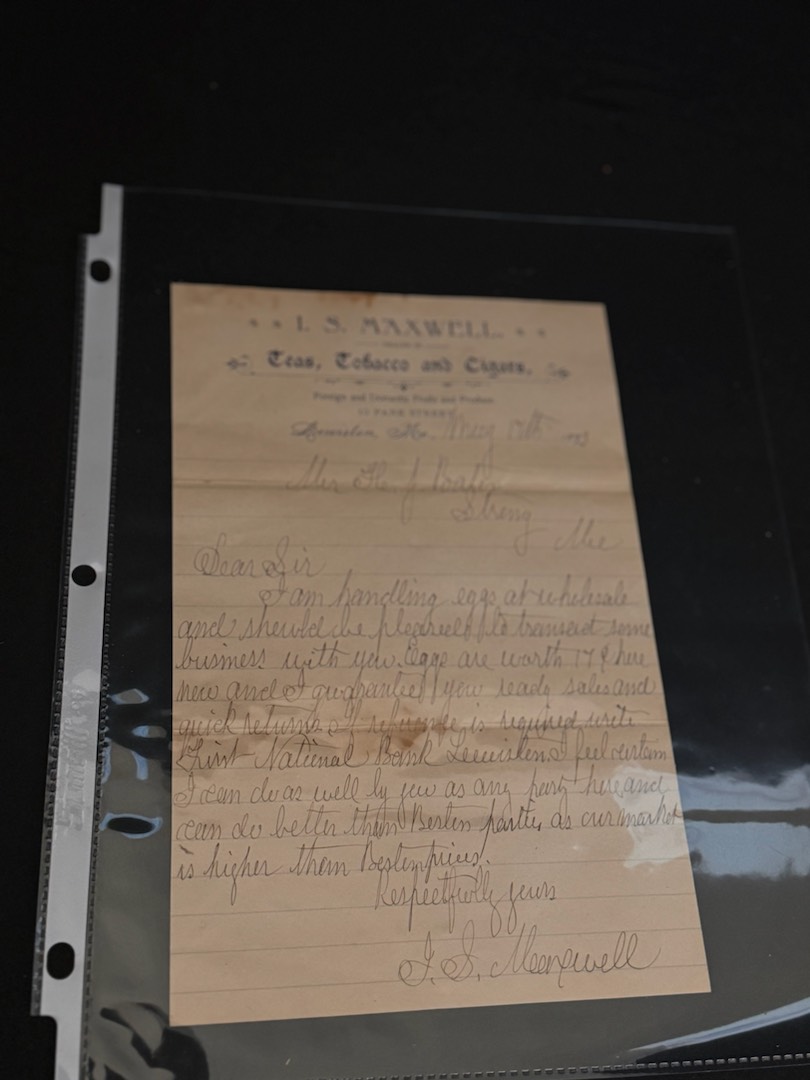 I. S. MAXWELL.
Teas, Tobacco and Cigars.
Foreign and Domestic Fruits and Produce
PARK STREET
Lewiston, Me. May 189
Mr H. J.
Strong
Me
Dear Sir
I am handling eggs at wholesale
and should be pleased to transact some
business with you. Eggs are worth 17¢ here
now and I guarantee you ready sales and
quick returns if refrence is required write
First National Bank Lewiston. I feel certain
I can do as well by you as any party here and
can do better than Boston parties as our market
is higher them Boston prices.
Respectfully yours
I. S. Maxwell